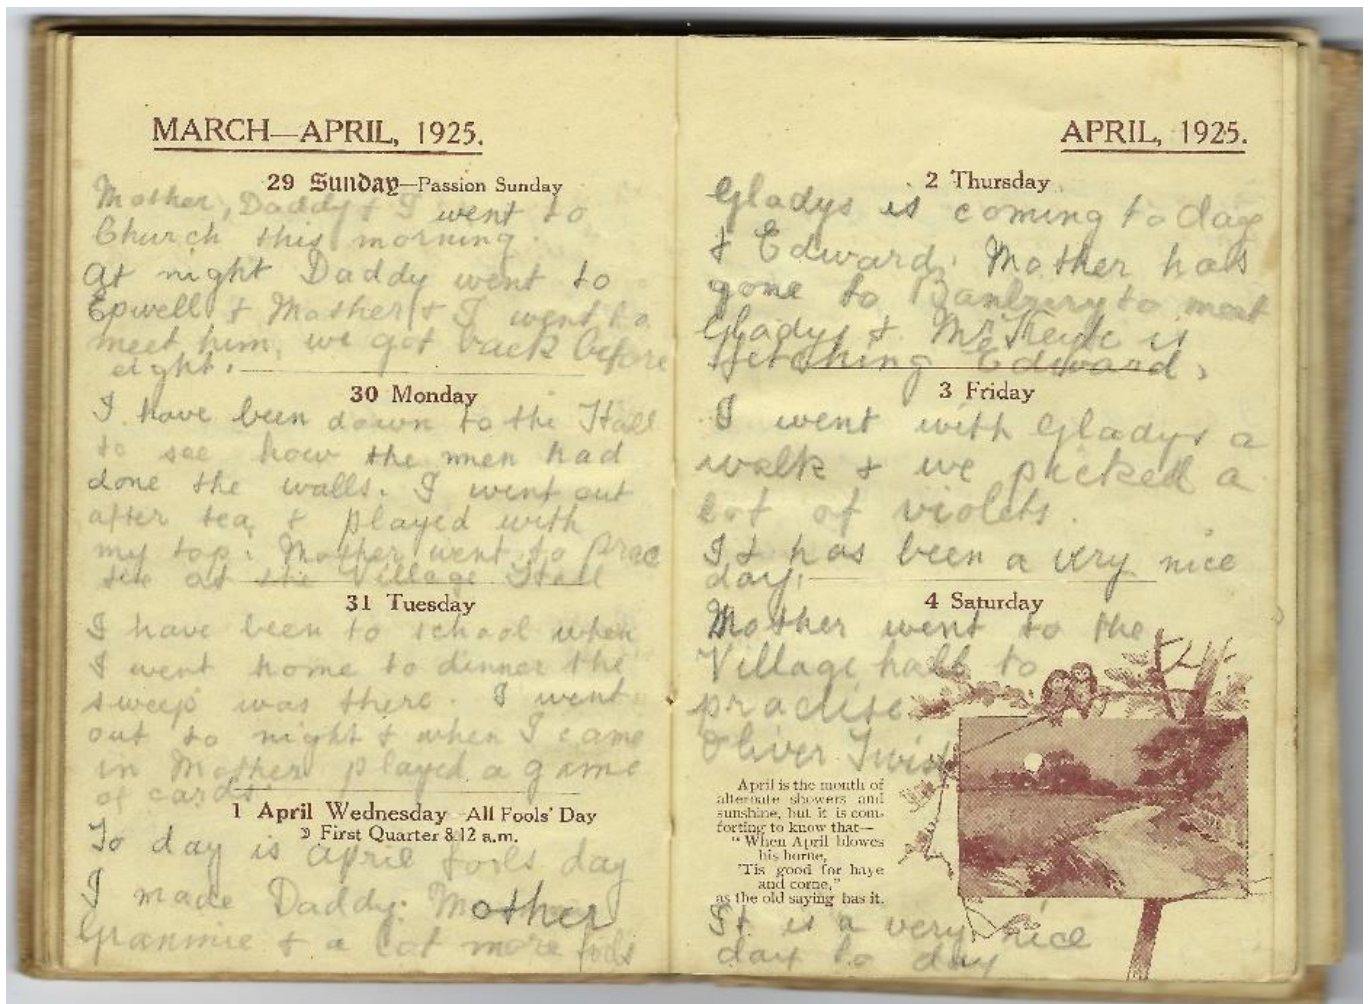 MARCH—APRIL, 1925.
29 Sunday—Passion Sunday
Mother, Daddy & I went to
Church this morning.
At night Daddy went to
Epwell & Mother & I went to
meet him, we got back before
eight.
30 Monday
I have been down to the Hall
to see how the men had
done the walls. I went out
after tea & played with
my top. Mother went to prac
tise at the Village Hall
31 Tuesday
I have been to school when
I went home to dinner the
sweep was there. I went
out to night & when I came
in Mother played a game
of cards.
1 April Wednesday—All Fools' Day
☽ First Quarter 8.12 a.m.
To day is april fools day
I made Daddy. Mother
Grannie & a lot more fools
APRIL, 1925.
2 Thursday
Gladys is coming to day
& Edward. Mother has
gone to Banbury to meet
Gladys & Mr is
fetching Edward.
3 Friday
I went with Gladys a
walk & we picked a
lot of violets.
It has been a very nice
day.
4 Saturday
Mother went to the
Village hall to
practise
Oliver Twist
April is the month of
alternate showers and
sunshine, but it is com-
forting to know that—
"When April blowes
his horne,
'Tis good for haye
and corne,"
as the old saying has it.
It is a very nice
day to day